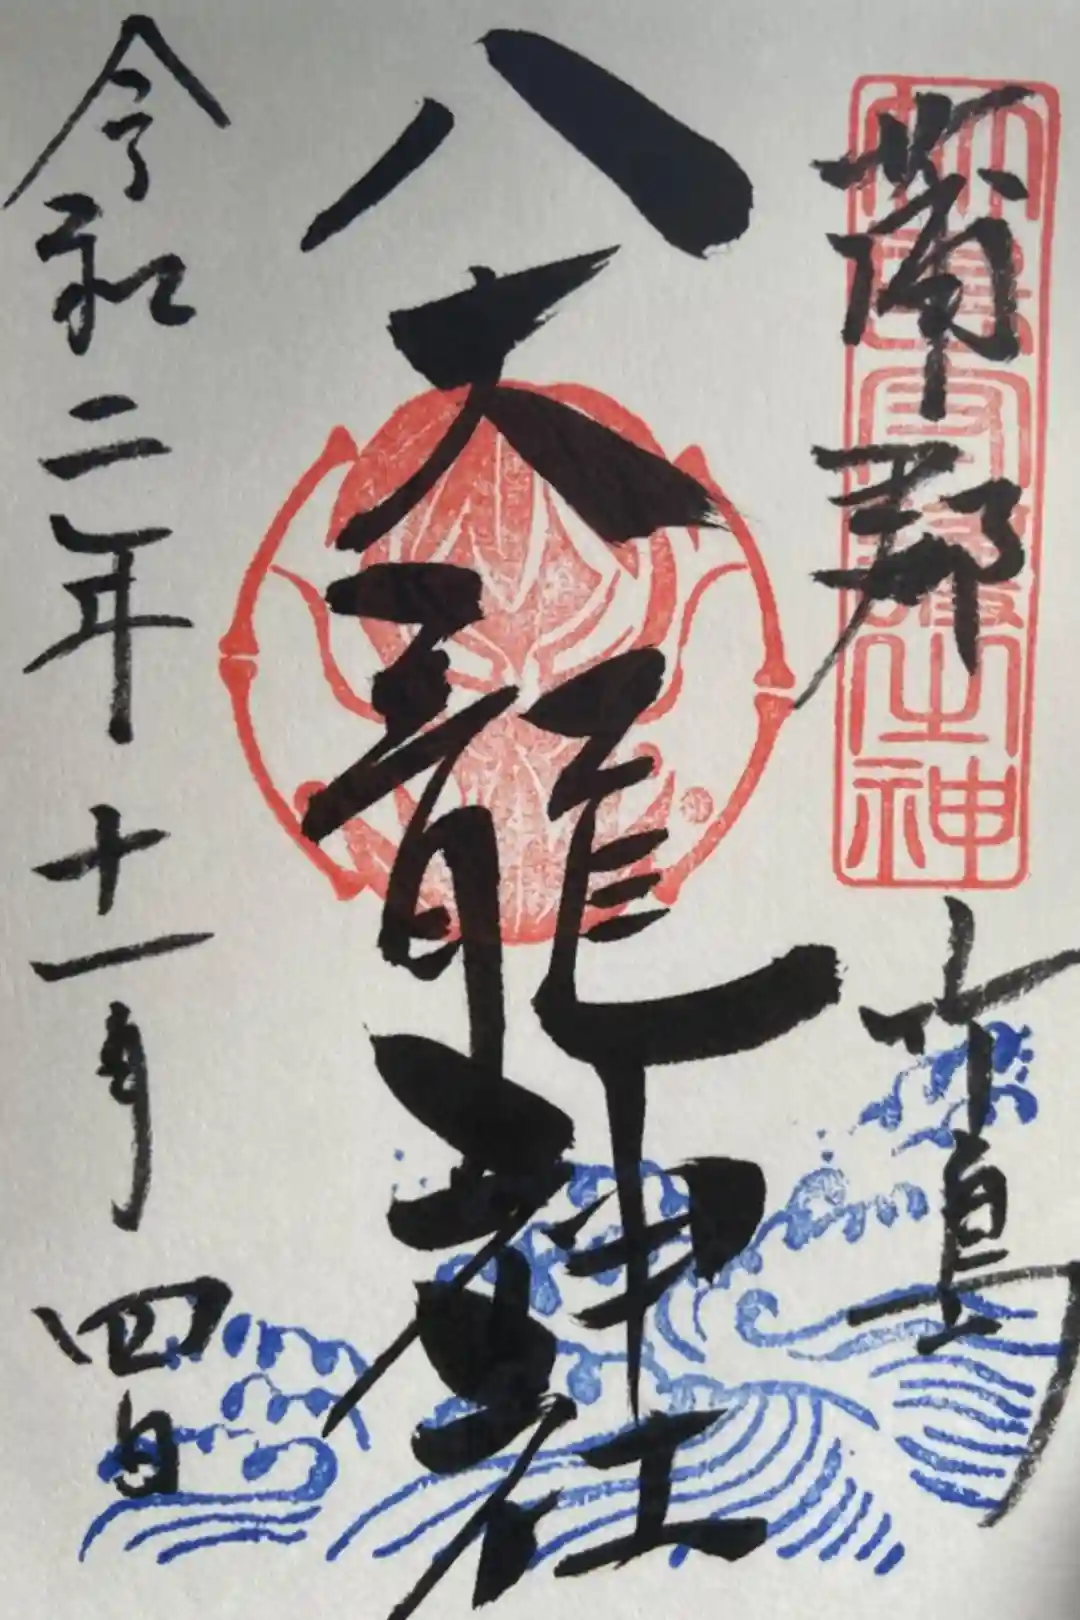 蒲郡 竹島
八大龍神社
令和二年十一月四日